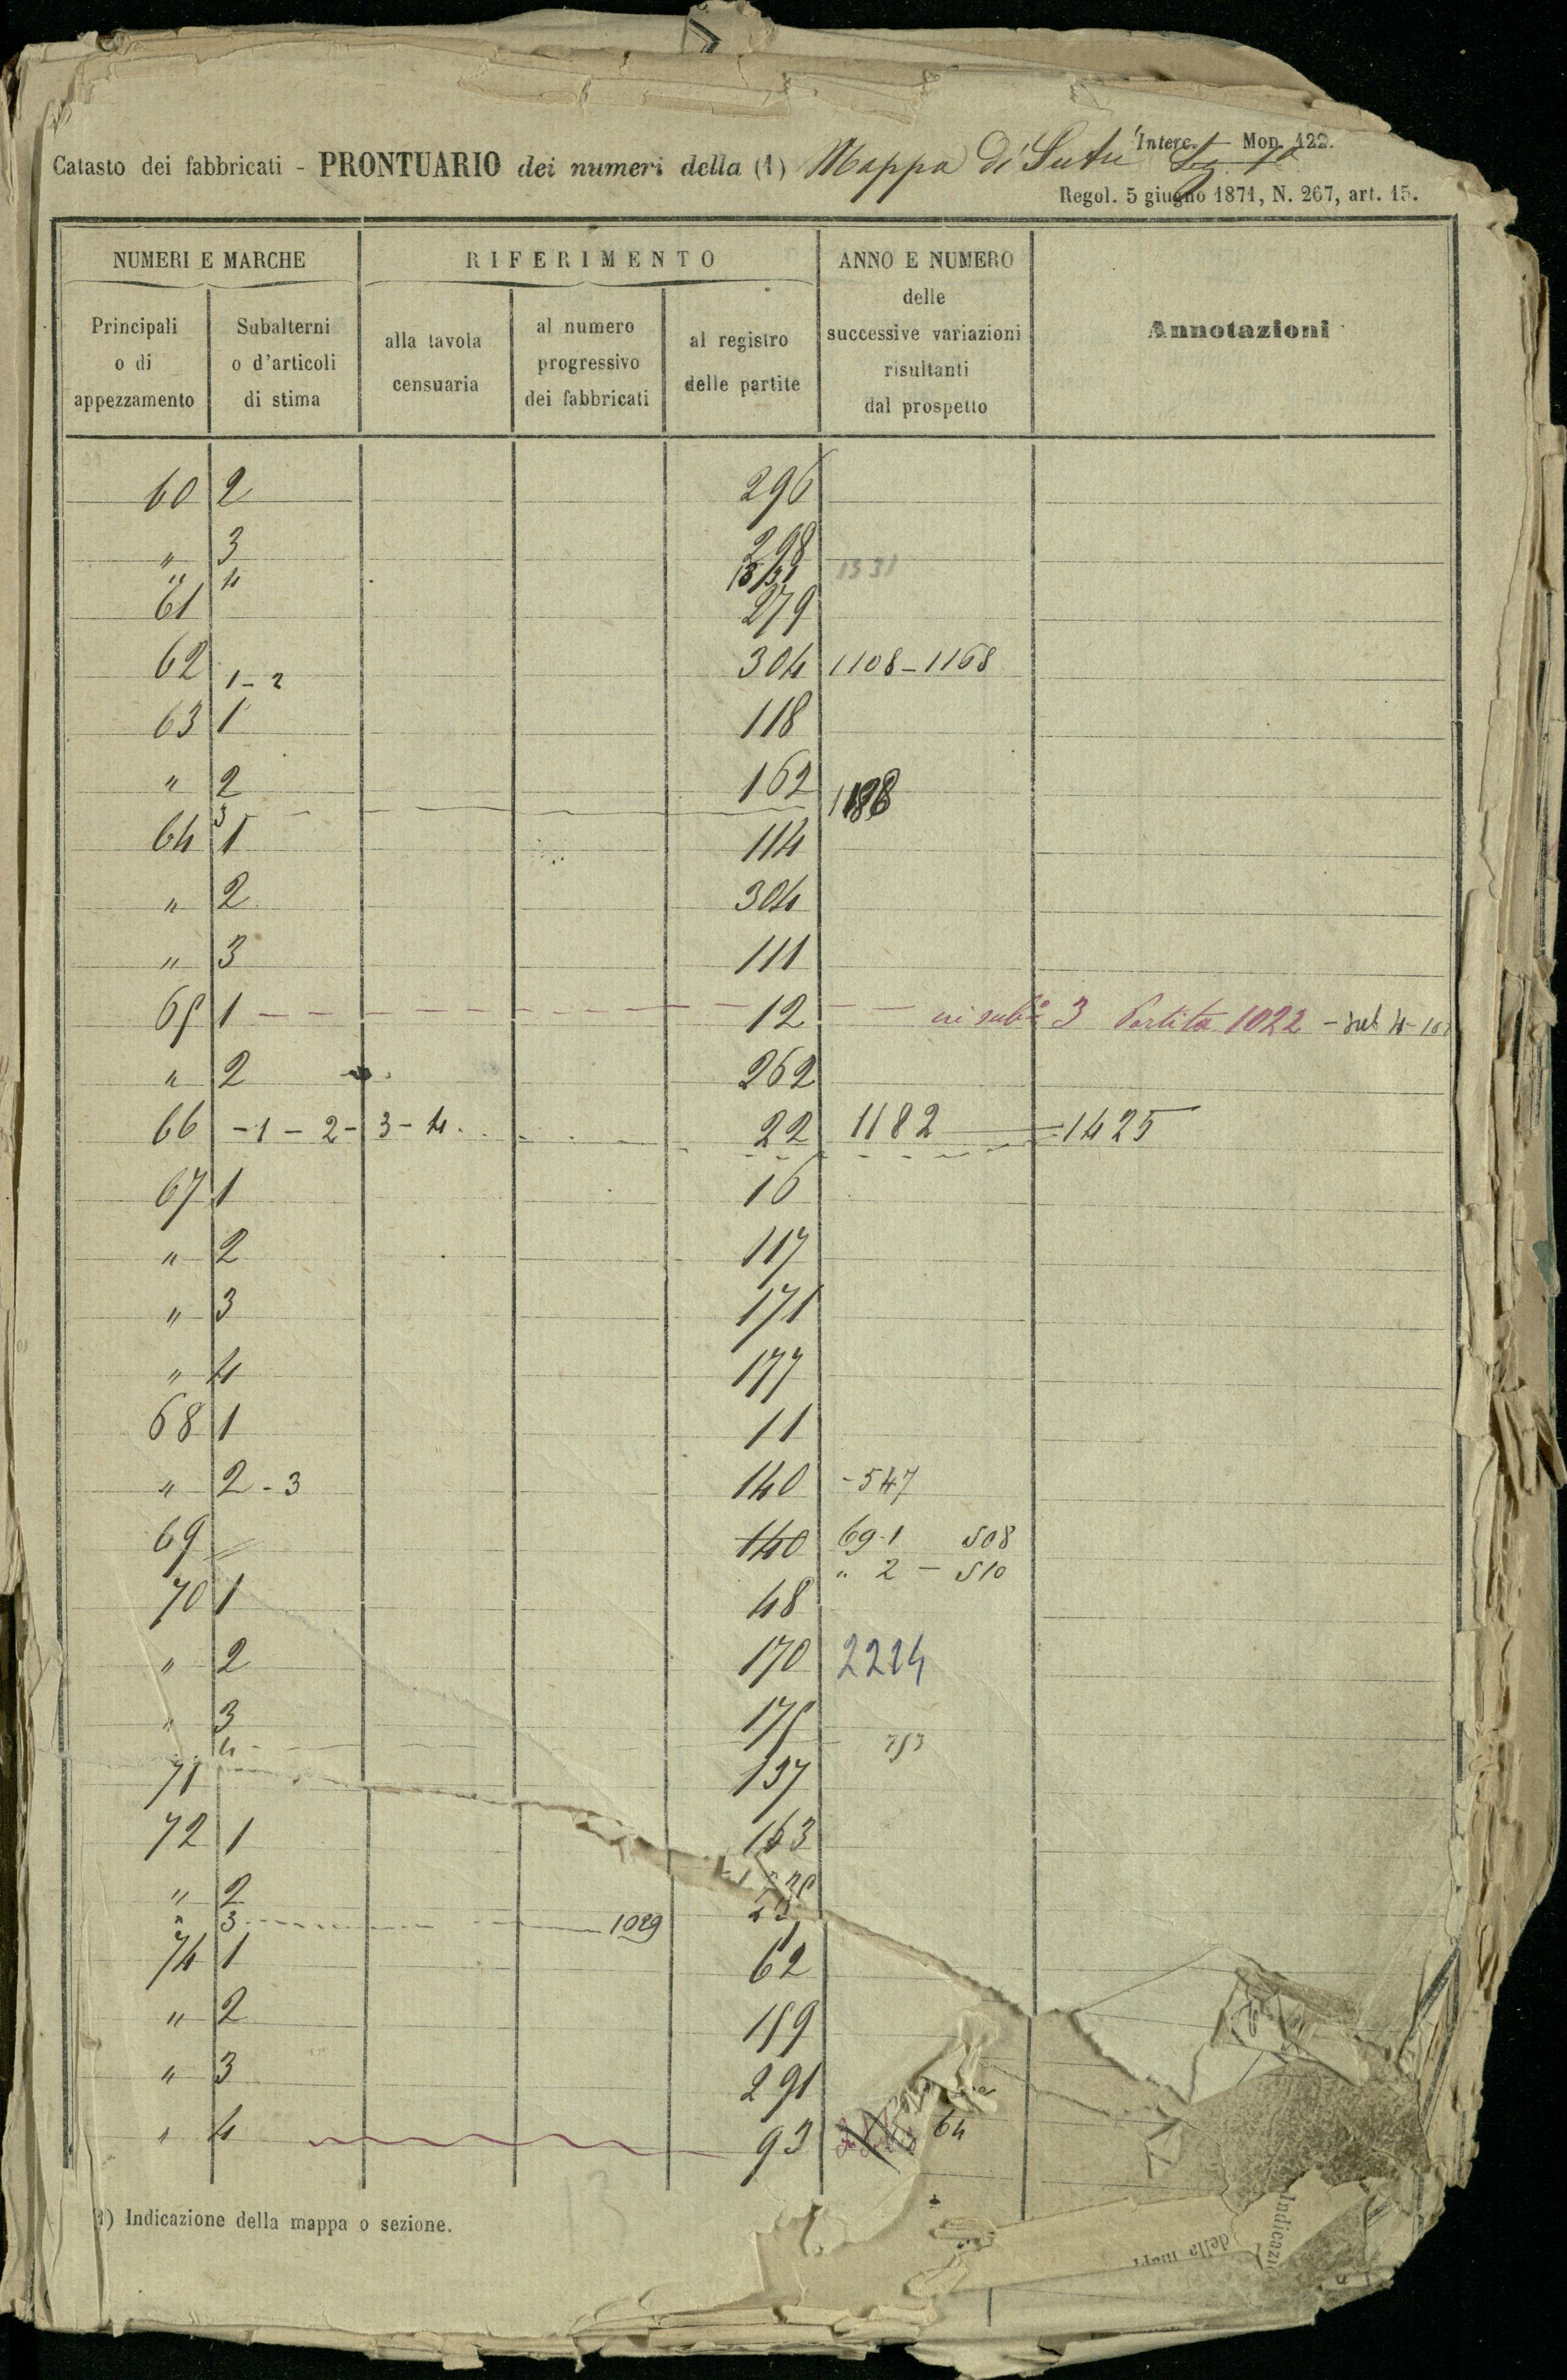 Interc. Mod. 122.
Catasto dei fabbricati - PRONTUARIO dei numeri della (1) Mappa di Sutri Sez. 1a
Regol. 5 giugno 1871, N. 267, art. 15.
NUMERI E MARCHE RIFERIMENTO ANNO E NUMERO delle successive variazioni risultanti dal prospetto Annotazioni
Principali o di appezzamento Subalterni o d'articoli di stima alla tavola censuaria al numero progressivo dei fabbricati al registro delle partite
60 2 296
" 3 298
" 4 1331 1331
61 279
62 1-2 304 1108-1168
63 1 118
" 2 162
3 1188
64 1 114
" 2 304
" 3 111
65 1 12 3 Partita 1022 - sub 4-
" 2 262
66 -1-2-3-4 22 1182 = 1425
67 1 16
" 2 117
" 3 171
" 4 177
68 1 11
" 2-3 140 -547
69 140 69-1 508
" 2 - 510
70 1 48
" 2 170 2224
" 3 175
4 753
71 137
72 1 163
" 2
" 3 1029
74 1 62
" 2 159
" 3 291
" 4 93 64
(1) Indicazione della mappa o sezione.
Indicazi
della map